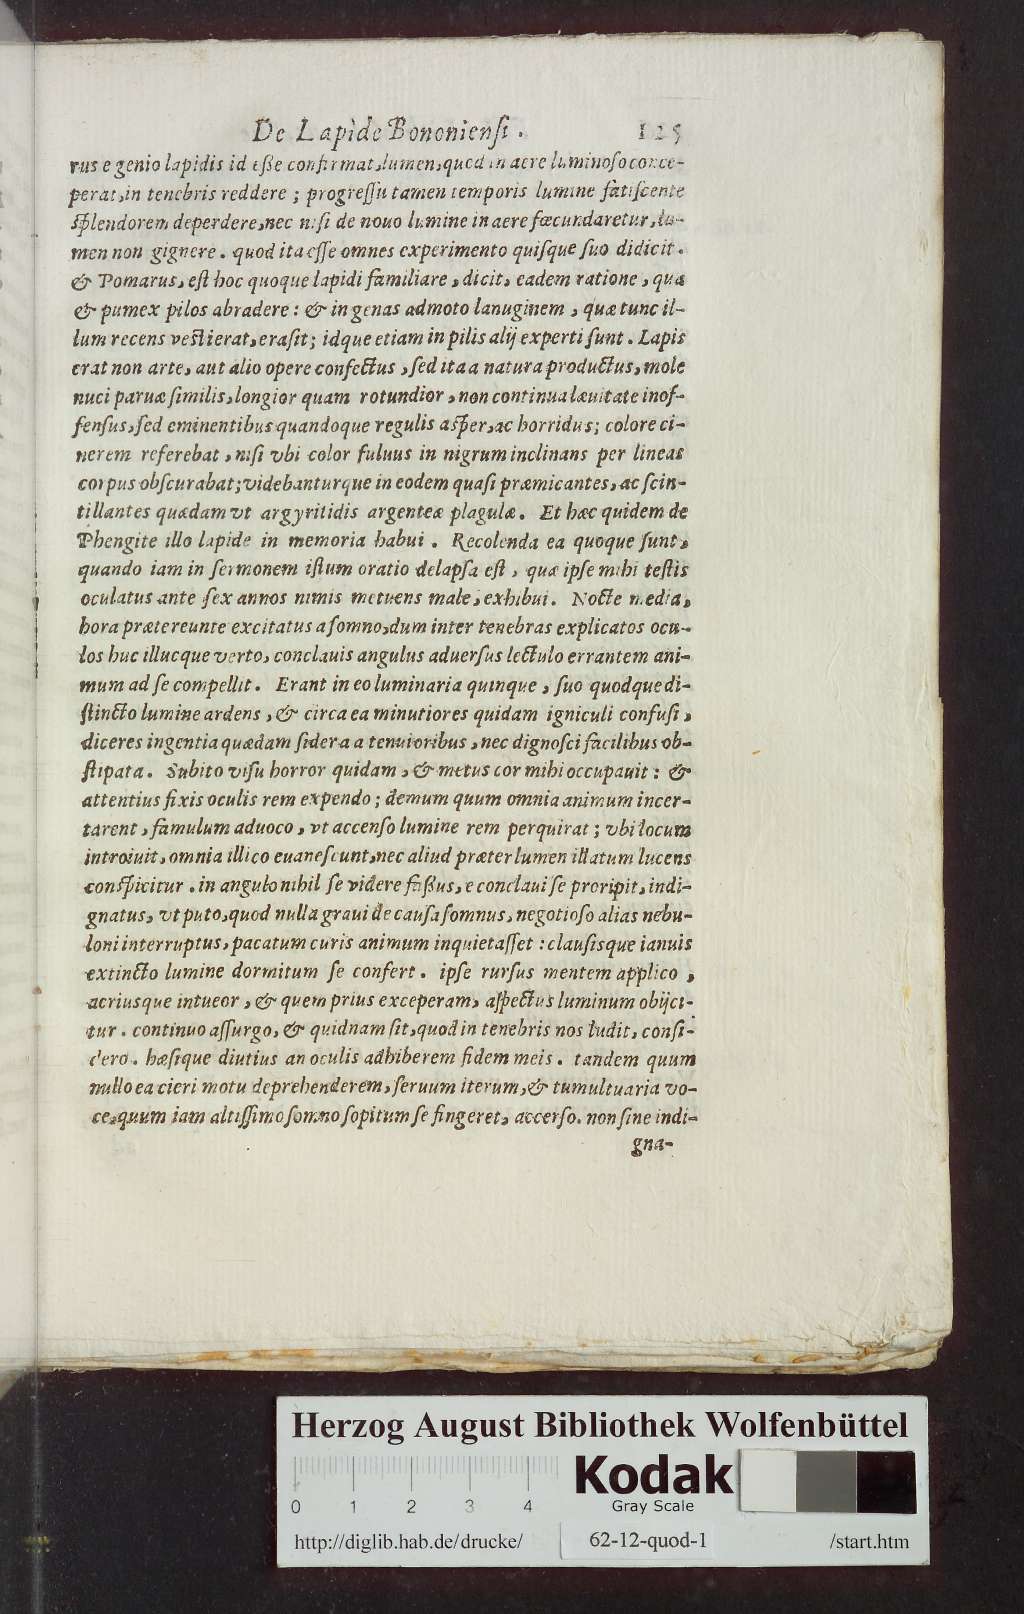 De Lapide Bononiensi. 125
rus e genio lapidis id eße confirmat, lumen, quod in aere luminoso conce-
perat, in tenebris reddere; progressu tamen temporis lumine fatiscente
splendorem deperdere, nec nisi de nouo lumine in aere fœcundaretur, lu-
men non gignere. quod ita esse omnes experimento quisque suo didicit.
& Pomarus, est hoc quoque lapidi familiare, dicit, eadem ratione, qua
& pumex pilos abradere: & in genas admoto lanuginem, quæ tunc il-
lum recens vestierat, erasit; idque etiam in pilis alij experti sunt. Lapis
erat non arte, aut alio opere confectus, sed ita a natura productus, mole
nuci paruæ similis, longior quam rotundior, non continua læuitate inof-
fensus, sed eminentibus quandoque regulis asper, ac horridus; colore ci-
nerem referebat, nisi vbi color fuluus in nigrum inclinans per lineas
corpus obscurabat; videbanturque in eodem quasi præmicantes, ac scin-
tillantes quædam vt argyritidis argenteæ plagulæ. Et hæc quidem de
Phengite illo lapide in memoria habui. Recolenda ea quoque sunt,
quando iam in sermonem istum oratio delapsa est, quæ ipse mihi testis
oculatus ante sex annos nimis metuens male, exhibui. Nocte media,
hora prætereunte excitatus a somno, dum inter tenebras explicatos ocu-
los huc illucque verto, conclauis angulus aduersus lectulo errantem ani-
mum ad se compellit. Erant in eo luminaria quinque, suo quodque di-
stincto lumine ardens, & circa ea minutiores quidam igniculi confusi,
diceres ingentia quædam sidera a tenuioribus, nec dignosci facilibus ob-
stipata. Subito visu horror quidam, & metus cor mihi occupauit: &
attentius fixis oculis rem expendo; demum quum omnia animum incer-
tarent, famulum aduoco, vt accenso lumine rem perquirat; vbi locum
introiuit, omnia illico euanescunt, nec aliud præter lumen illatum lucens
conspicitur. in angulo nihil se videre faßus, e conclaui se proripit, indi-
gnatus, vt puto, quod nulla graui de causa somnus, negotioso alias nebu-
loni interruptus, pacatum curis animum inquietasset: clausisque ianuis
extincto lumine dormitum se confert. ipse rursus mentem applico,
acriusque intueor, & quem prius exceperam, aspectus luminum obijci-
tur. continuo assurgo, & quidnam sit, quod in tenebris nos ludit, consi-
dero. hæsique diutius an oculis adhiberem fidem meis. tandem quum
nullo ea cieri motu deprehenderem, seruum iterum, & tumultuaria vo-
ce, quum iam altissimo somno sopitum se fingeret, accerso. non sine indi-
gna-
Herzog August Bibliothek Wolfenbüttel
Kodak
Gray Scale
0 1 2 3 4
http://diglib.hab.de/drucke/ 62-12-quod-1 /start.htm